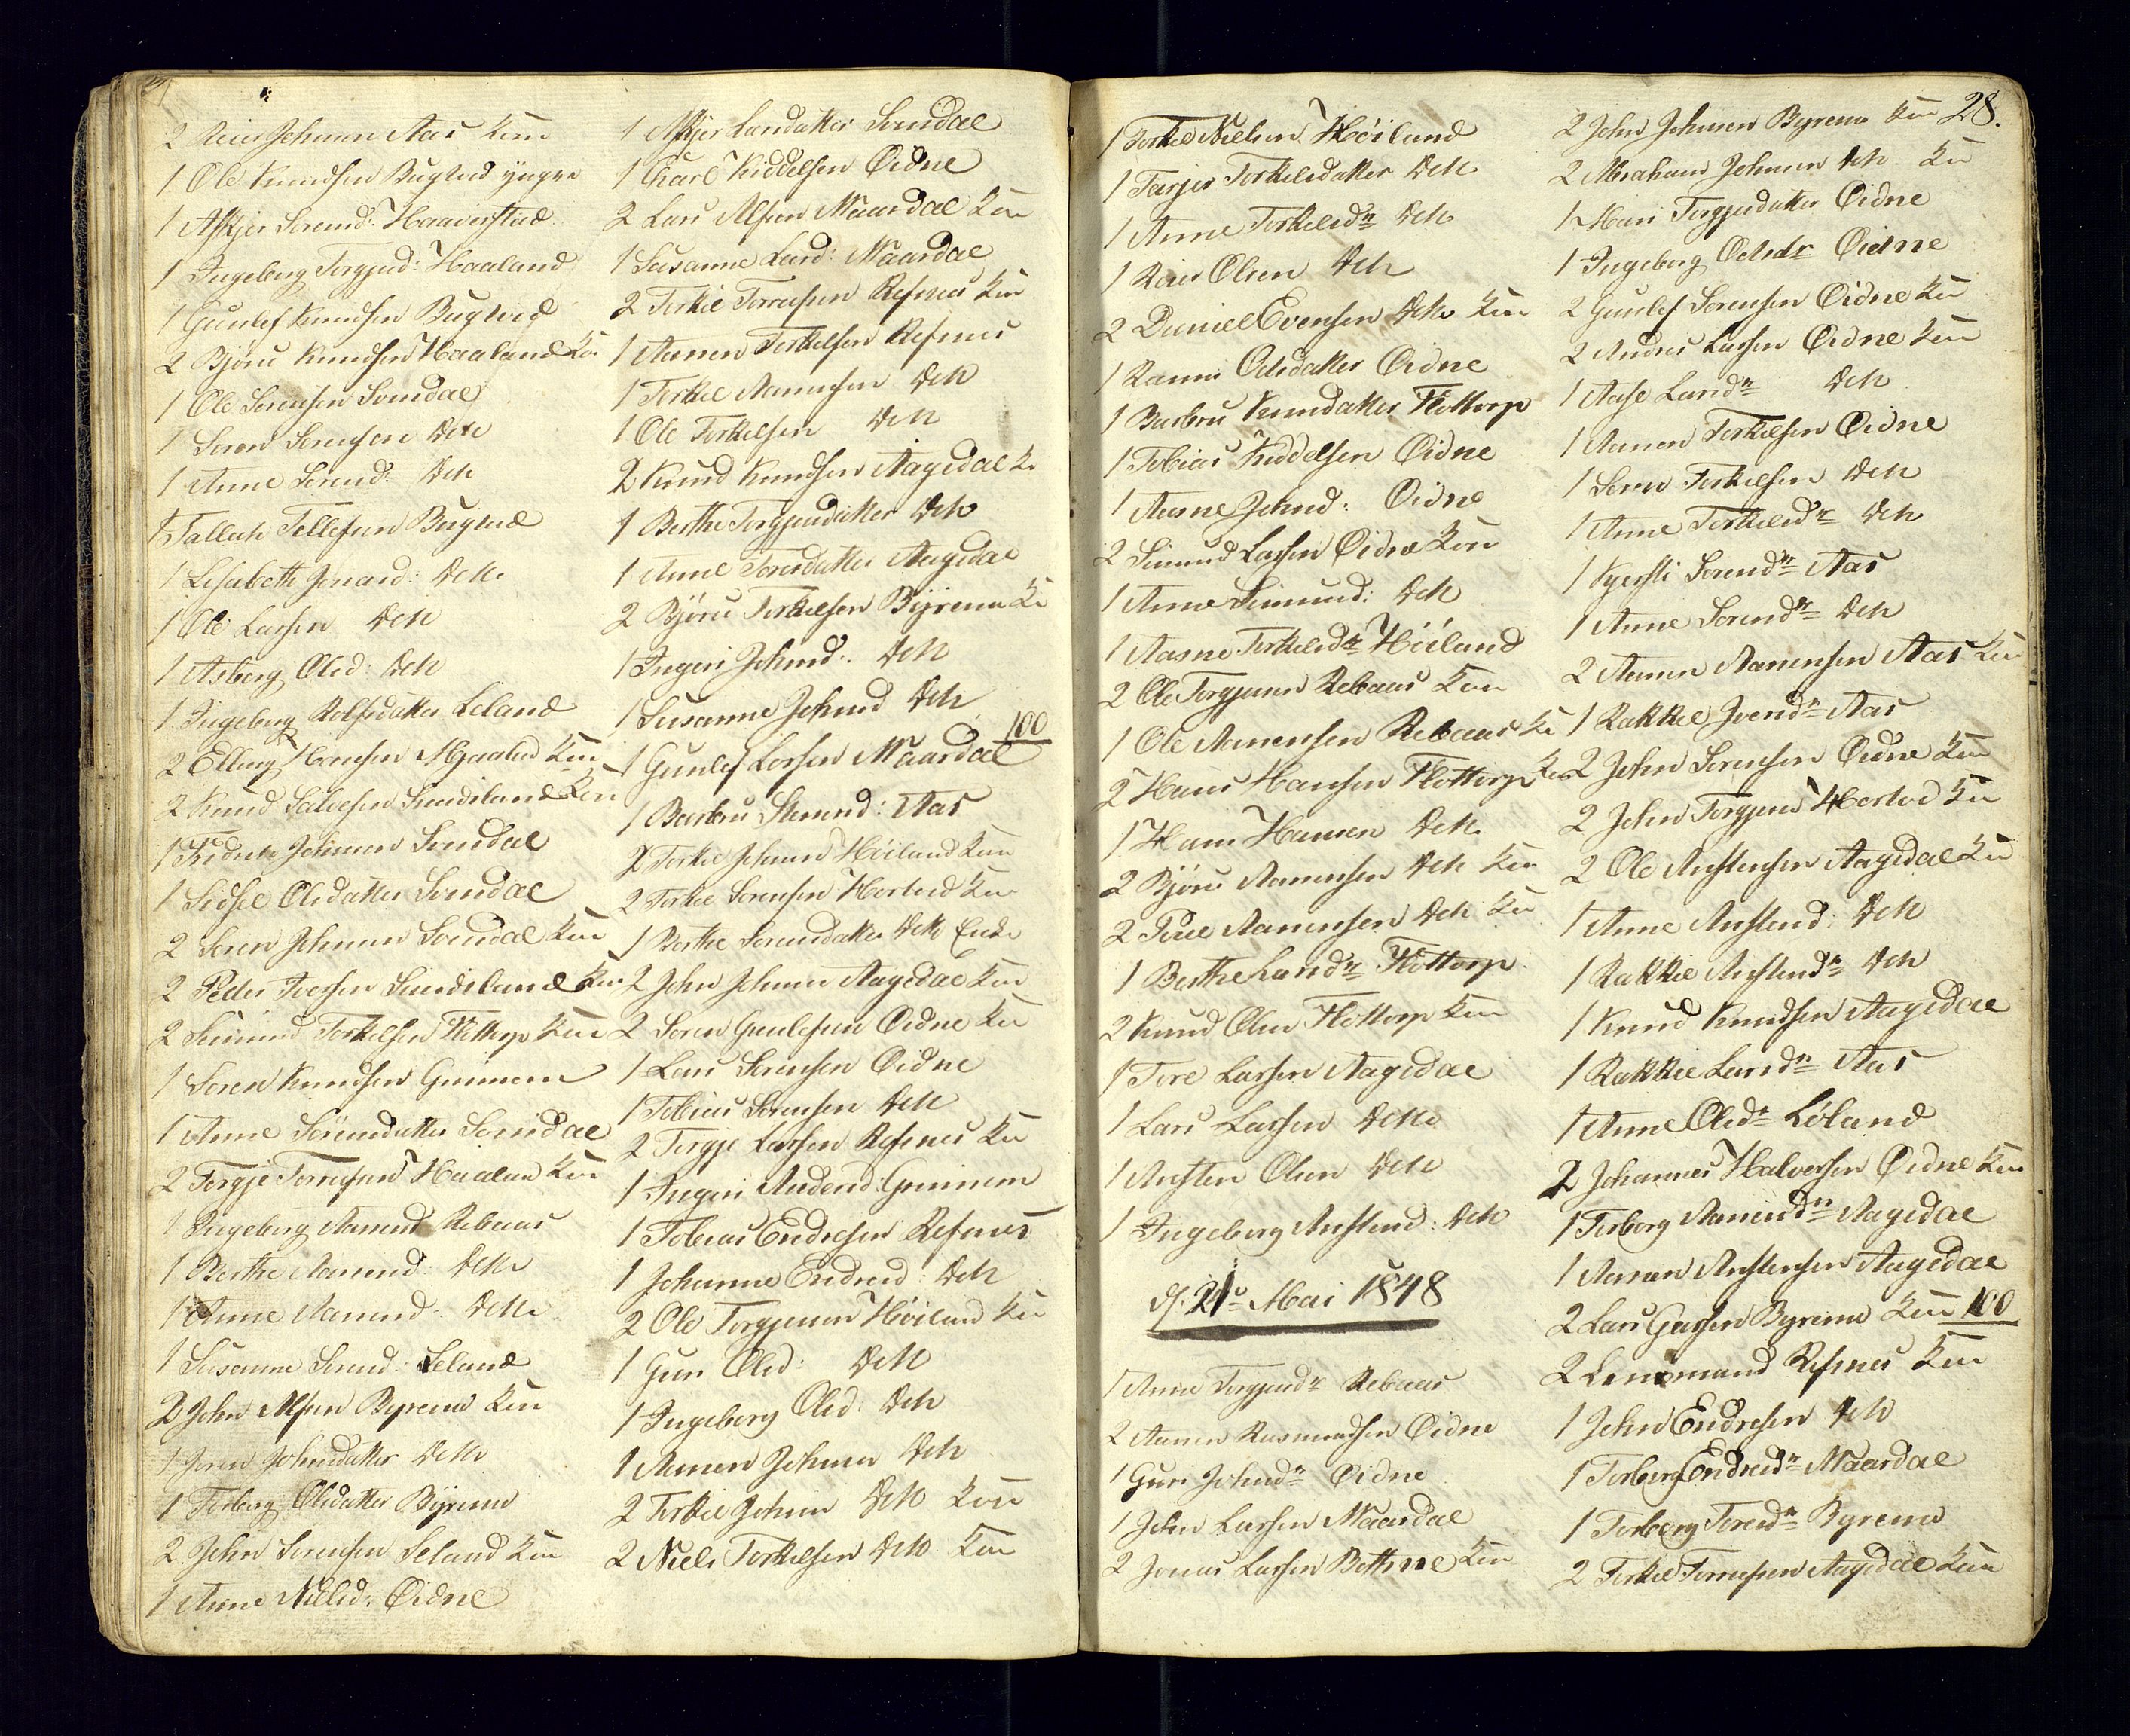 2 Reier Johnsen Aas Kone
1 Ole Knudsen Bugted yngre
1 Askjer Sørend: Haaverstad
1 Ingeborg Torgjusd: Haaland
1 Gunlef Knudsen Bugted
2 Björnu Knudsen Haaland Kon
1 Ole Sörensen Svindal
1 Søren Sørensen Dete
1 Anne Sörend: Dett
1 Tallak Tellefsen Bugted
1 Lisabeth Jonasd: Dette
1 Ole Larsen Dett
1 Asborg Olsd: Dett
1 Ingeborg Rolfsdatter Leland
2 Elling Hansen Hjaalad Kon
2 Knud Salvesen Sundsland Kon
1 Fredrik Johnsen Svindal
1 Sidsel Olsdatter Svindal
2 Søren Johnsen Svindal Kon
2 Peder Iversen Sundsland Kon
2 Simund Torkelsen Flottorp Kone
1 Søren Knudsen Guimem
1 Anne Sörensdatter Svindal
2 Torgje Tomesen Haaland Kon
1 Ingeborg Aanend Rebaas
1 Berthe Aanend: Dette
1 Anne Aanend: Dette
1 Susanne Sörend: Leland
2 John Alfsen Byremo Kon
1 Joren Johnsdatter Dette
1 Torborg Olsdatter Byremo
2 John Sørensen Seland Kon
1 Anne Nielsd: Øidne
1 Askjer Larsdatter Svindal
1 Charl Kiddelsen Øidne
2 Lars Alfsen Maardal Kon
1 Susanne Larsd: Maardal
2 Torkel Tomesen Refsnes Kon
1 Aanen Torkelsen Refsnes
1 Torkel Aanensen Dett
1 Ole Torkelsen Dett
2 Knud Knudsen Aagedal K
1 Berthe Torgjusdatter Dett
1 Anne Toresdatter Aagedal
2 Björnu Torkelsen Byremo Ko
1 Ingeri Johnsd: Dett
1 Susanne Johnsd Dett
100
1 Gunlef Larsen Maardal
1 Barbru Stenend: Aas
2 Torkel Johnsen Höiland Kon
2 Torkel Sørensen Hortod Kon
1 Berthe Sørensdatter Dett Enke
2 John Johnsen Aagedal Kon
2 Søren Gunlefsen Øidne Kon
1 Lars Sørensen Øidne
1 Tobias Sørensen Dett
2 Torgje Larsen Refsnes Kon
1 Ingeri Andersd: Guimem
1 Tobias Endresen Refsnes
1 Johanne Endresd: Dett
2 Ole Torgjusen Höiland Kon
1 Guri Olsd: Dett
1 Ingeborg Olsd: Dett
1 Aanen Johnsen Dett
2 Torkel Johnsen Dett Kon
2 Niels Torkelsen Dett Kon
28.
1 Torkel Nielsen Höiland
1 Tarjer Torkelsdatter Dett
1 Anne Torkelsdr Dett
1 Reier Olsen Dett
2 Daniel Evensen Dett Kon
1 Ranni Odsdatter Øidne
1 Barbru Knudsdatter Flottorp
1 Tobias Kiddelsen Øidne
1 Aasne Johnsd: Øidne
2 Simund Larsen Øidne Kon
1 Anne Simund: Dett
1 Aasne Torkelsdr Höiland
2 Ole Torgjusen Rebaas Kon
1 Ole Aanensen Rebaas Ko
2 Hans Hansen Flottorp Kon
1 Hans Hansen Dett
2 Björnu Aanensen Dett Kon
2 Peder Aanensen Dett Kon
1 Berthe Larsdr Flottorp
2 Knud Olsen Flottorp Kon
1 Tore Larsen Aagedal
1 Lars Larsen Dette
1 Ansten Olsen Dett
1 Ingeborg Anstend: Dett
d. 21de Mai 1848
1 Anne Torgjusdr Rebaas
2 Aanen Rasmundsen Øidne
1 Guri Johnsdr Øidne
1 John Larsen Maardal
2 Jonas Larsen Bothne Kon
2 John Johnsen Byremo Kon
2 Abraham Johnsen Dett Kon
1 Mari Torgjusdatter Øidne
1 Ingeborg Odsdr Øidne
2 Gunlef Sørensen Øidne Kon
2 Andres Larsen Øidne Kon
1 Aase Larsdr Dett
1 Aanen Torkelsen Øidne
1 Søren Torkelsen Dett
1 Anne Torkelsdr Dett
1 Kjersti Sørensdr Aas
1 Anne Sørensdr Dett
2 Aanen Aanensen Aas Kon
1 Rakkel Iversdr Aas
2 John Sørensen Øidne Kon
2 John Torgjusen Hortod Kon
2 Ole Anstensen Aagedal Kon
1 Anne Anstend: Dett
1 Rakkel Anstendr Dett
1 Knud Knudsen Aagedal
1 Rakkel Larsdr Aas
1 Anne Olsdr Løland
2 Johannes Halvorsen Øidne Kon
1 Torborg Aanensdr Aagedal
1 Aanen Anstensen Aagedal
2 Lars Garsen Byremo Kon 100
2 Lensmand Refsnes Kon
1 John Endresen Dett
1 Torborg Endresdr Maardal
1 Torborg Toresdr Byremo
2 Torkel Tomesen Aagedal Kon